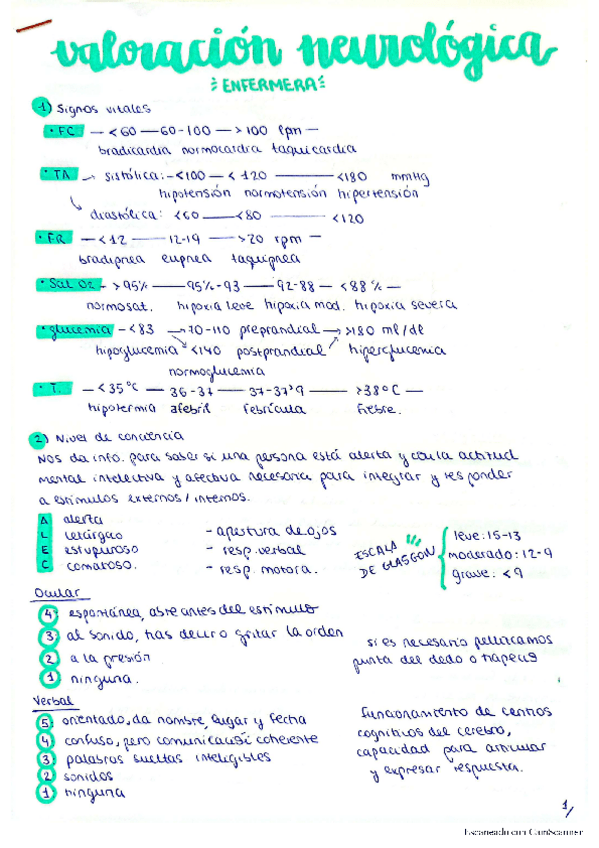 valoración neurológica
ENFERMERA
1) Signos vitales
• FC — < 60 — 60-100 — > 100 lpm —
bradicardia normocardia taquicardia
• TA → sistólica: - <100 — < 120 — <180 mmHg
hipotensión normotensión hipertensión
↳ diastólica: < 60 — <80 — <120
• FR — < 12 — 12-19 — > 20 rpm —
bradipnea eupnea taquipnea
• Sat O2 - > 95% — 95%-93 — 92-88 — < 88% —
normosat. hipoxia leve hipoxia mod. hipoxia severa
• glucemia - < 83 → 70-110 preprandial → >180 ml/dl
hipoglucemia <140 postprandial hiperglucemia
normoglucemia
• T. — < 35°C — 36-37 — 37-37'9 — >38°C —
hipotermia afebril febrícula fiebre.
2) Nivel de conciencia
Nos da info. para saber si una persona está alerta y con la actitud
mental intelectiva y afectiva necesaria para integrar y responder
a estímulos externos / internos.
A alerta
L letárgico - apertura de ojos
E estuporoso - resp. verbal
C comatoso. - resp. motora.
ESCALA DE GLASGON
leve: 15-13
moderado: 12-9
grave: < 9
Ocular
4 espontánea, abre antes del estímulo
3 al sonido, tras decir o gritar la orden
2 a la presión
1 ninguna.
si es necesario pellizcamos
punta del dedo o trapecio
Verbal
5 orientado, da nombre, lugar y fecha
4 confuso, pero comunicación coherente
3 palabras sueltas inteligibles
2 sonidos
1 ninguna
funcionamiento de centros
cognitivos del cerebro,
capacidad para articular
y expresar respuesta.
1/
Escaneado con CamScanner